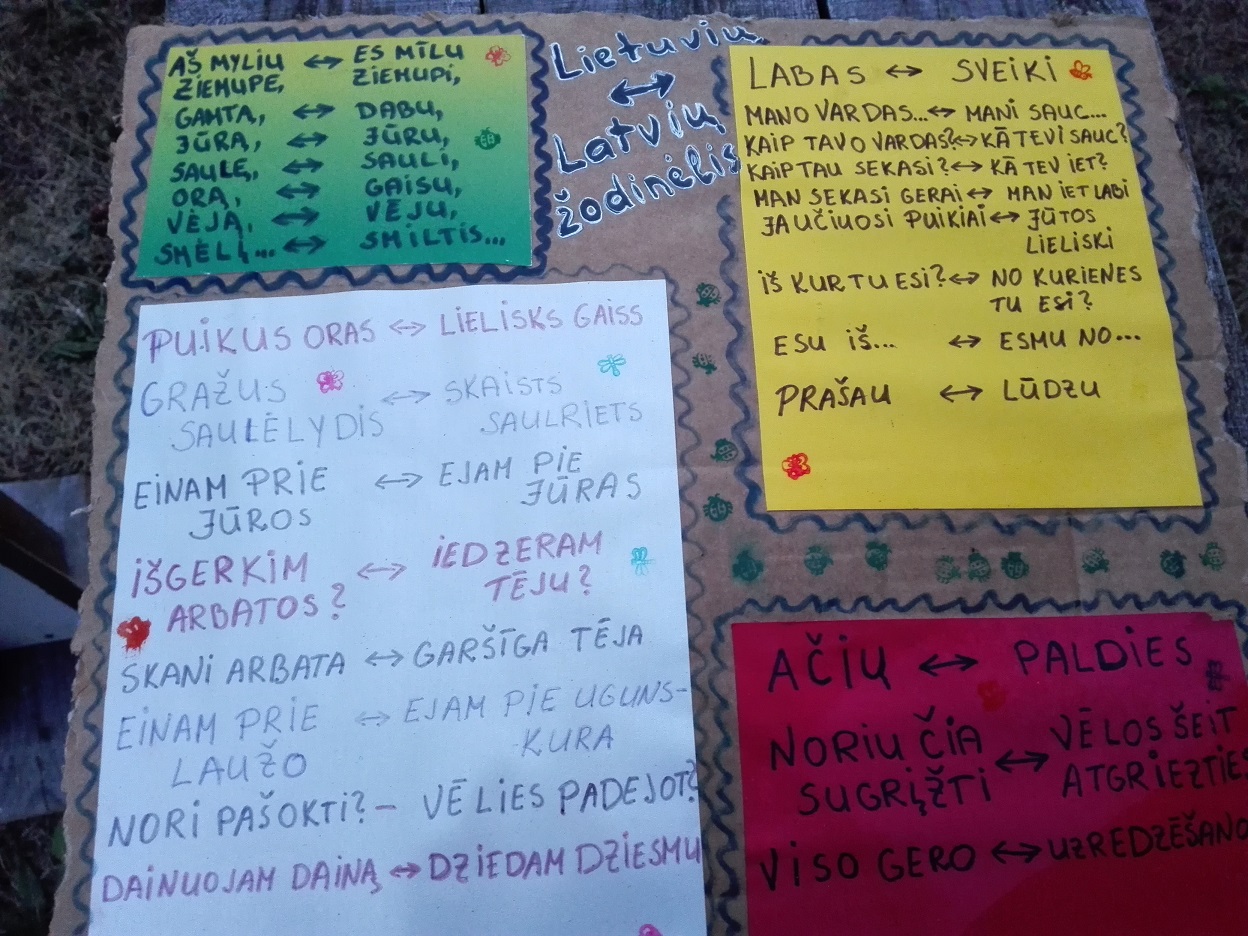 AŠ MYLIU ↔ ES MĪLU
ŽIEMUPE, ZIEMUPI,
GAMTĄ, ↔ DABU,
JŪRĄ, ↔ JŪRU,
SAULĘ, ↔ SAULI,
ORĄ, ↔ GAISU,
VĖJĄ, ↔ VĒJU,
SMĖLĮ... ↔ SMILTIS...
Lietuvių
↔
Latvių
žodinėlis
LABAS ↔ SVEIKI
MANO VARDAS... ↔ MANI SAUC...
KAIP TAVO VARDAS? ↔ KĀ TEVI SAUC?
KAIP TAU SEKASI? ↔ KĀ TEV IET?
MAN SEKASI GERAI ↔ MAN IET LABI
JAUČIUOSI PUIKIAI ↔ JŪTOS
LIELISKI
IŠ KUR TU ESI? ↔ NO KURIENES
TU ESI?
ESU IŠ... ↔ ESMU NO...
PRAŠAU ↔ LŪDZU
PUIKUS ORAS ↔ LIELISKS GAISS
GRAŽUS ↔ SKAISTS
SAULĖLYDIS SAULRIETS
EINAM PRIE ↔ EJAM PIE
JŪROS JŪRAS
IŠGERKIM ↔ IEDZERAM
ARBATOS? TĒJU?
SKANI ARBATA ↔ GARŠĪGA TĒJA
EINAM PRIE ↔ EJAM PIE UGUNS-
LAUŽO KURA
NORI PAŠOKTI? – VĒLIES PADEJOT?
DAINUOJAM DAINĄ ↔ DZIEDAM DZIESMU
AČIŪ ↔ PALDIES
NORIU ČIA ↔ VĒLOS ŠEIT
SUGRĮŽTI ATGRIEZTIES
VISO GERO ↔ UZREDZĒŠANO